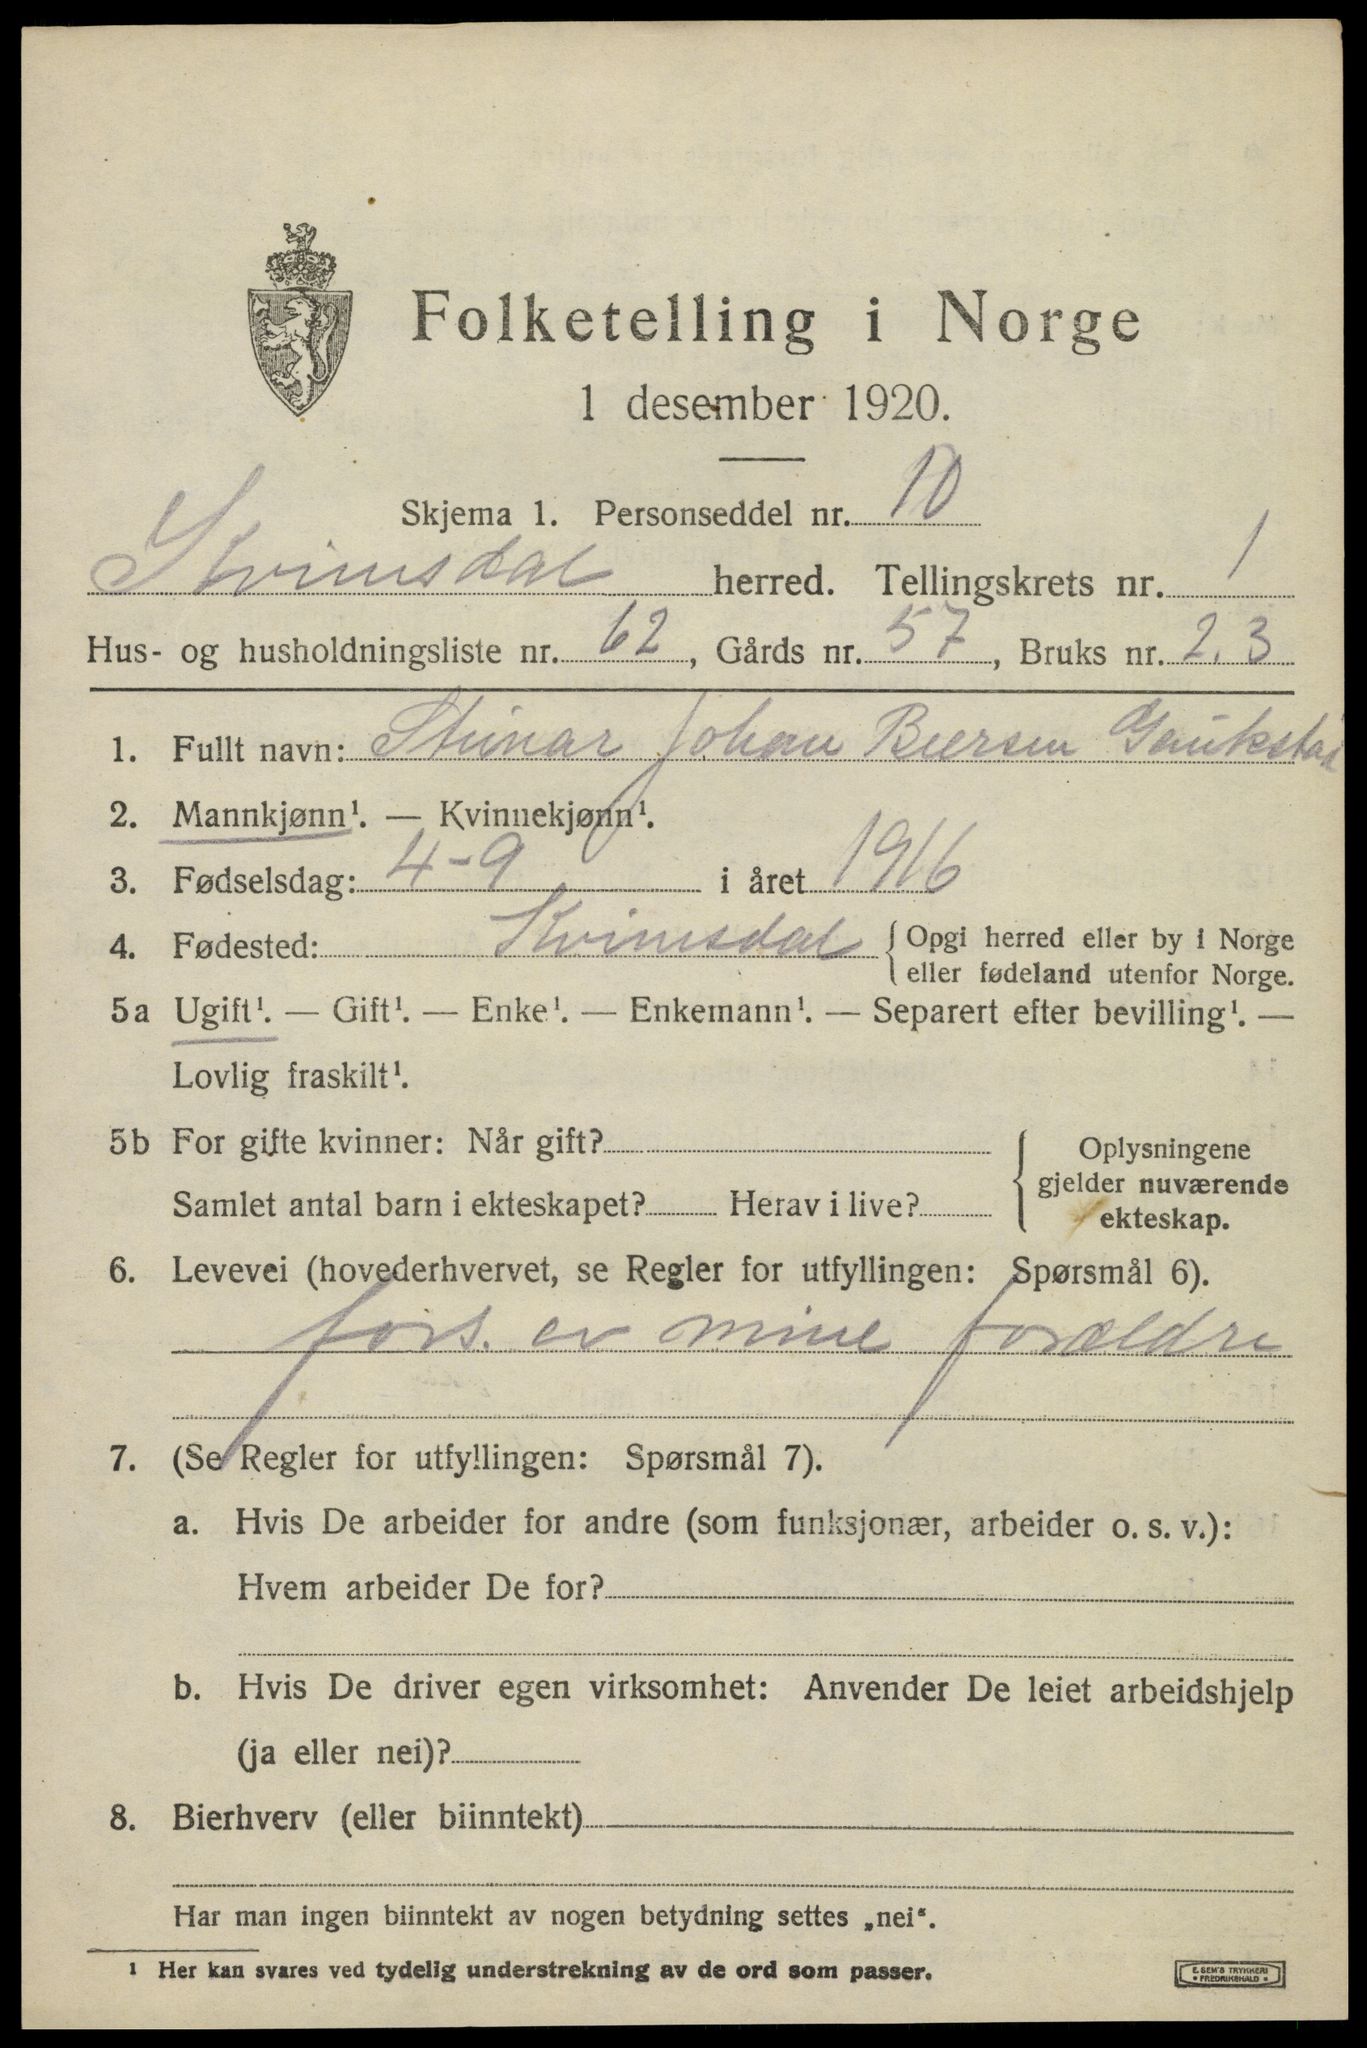 Folketelling i Norge
1 desember 1920.
Skjema 1. Personseddel nr. 10
Kvinesdal herred. Tellingskrets nr. 1
Hus- og husholdningsliste nr. 62, Gårds nr. 57, Bruks nr. 2, 3
1. Fullt navn: Steinar Johan Beersen Gaukstad
2. Mannkjønn¹. — Kvinnekjønn¹.
3. Fødselsdag: 4-9 i året 1916
4. Fødested: Kvinesdal { Opgi herred eller by i Norge
eller fødeland utenfor Norge.
5a Ugift¹. — Gift¹. — Enke¹. — Enkemann¹. — Separert efter bevilling¹. —
Lovlig fraskilt¹.
5b For gifte kvinner: Når gift?
Samlet antal barn i ekteskapet? Herav i live?
Oplysningene
gjelder nuværende
ekteskap.
6. Levevei (hovederhvervet, se Regler for utfyllingen: Spørsmål 6).
fors. av mine forældre
7. (Se Regler for utfyllingen: Spørsmål 7).
a. Hvis De arbeider for andre (som funksjonær, arbeider o. s. v.):
Hvem arbeider De for?
b. Hvis De driver egen virksomhet: Anvender De leiet arbeidshjelp
(ja eller nei)?
8. Bierhverv (eller biinntekt)
Har man ingen biinntekt av nogen betydning settes „nei“.
¹ Her kan svares ved tydelig understrekning av de ord som passer.
E. SEM'S TRYKKERI
• FREDRIKSHALD •